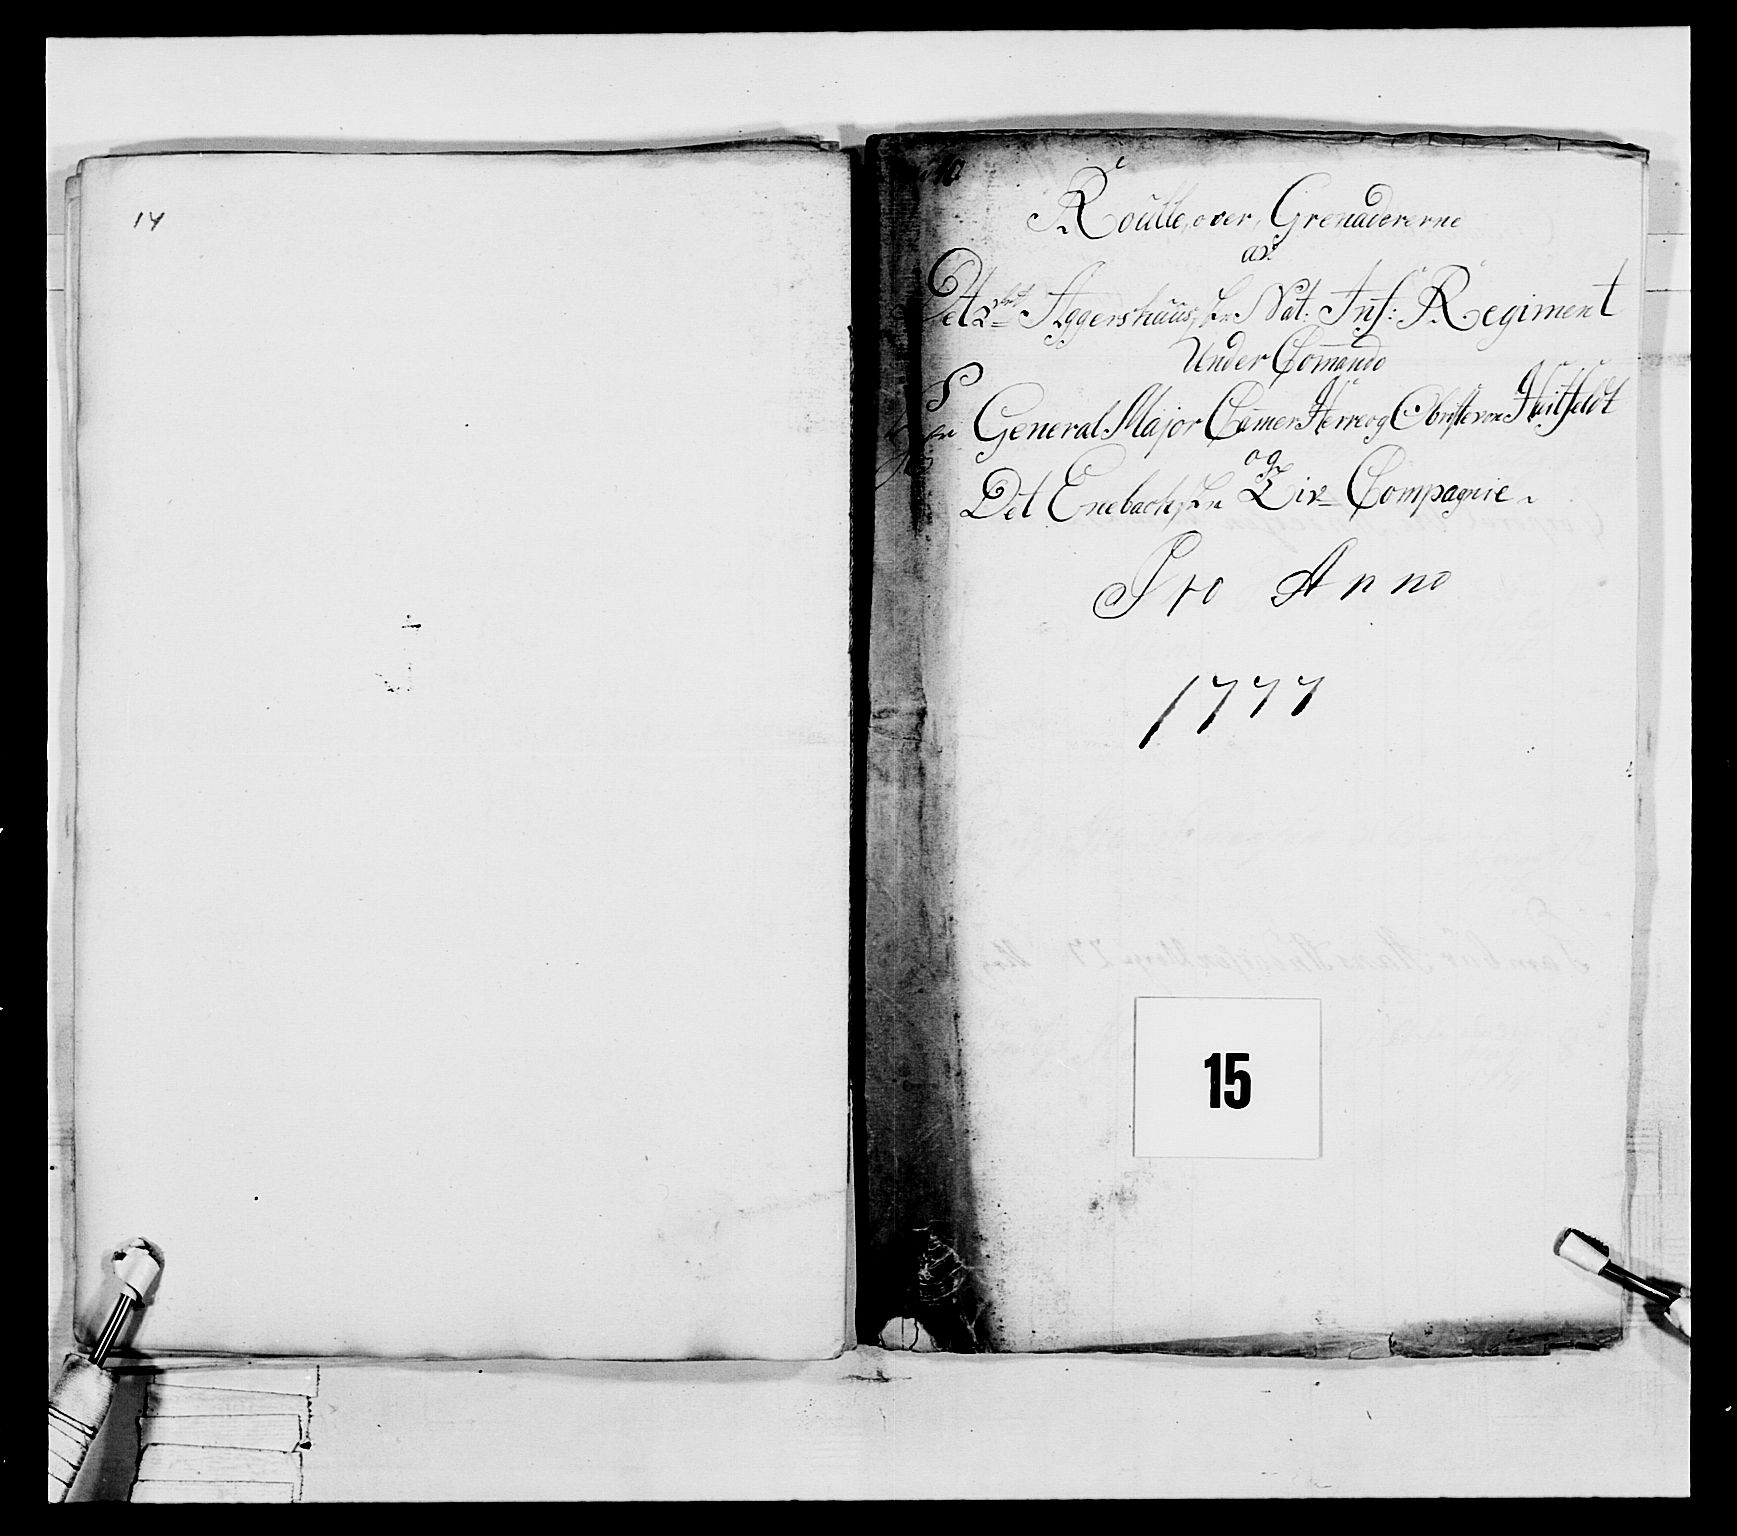 14
Roulle, over, Grenadererne
av
Det 2det Aggershuus, ske Nat: Inf: Regiment
Under Comando
S
General Major Camer Herre og Obriste von Huitfeldt
og
Det Enebach, ske Liv Compagnie
Pro Anno
1777
15